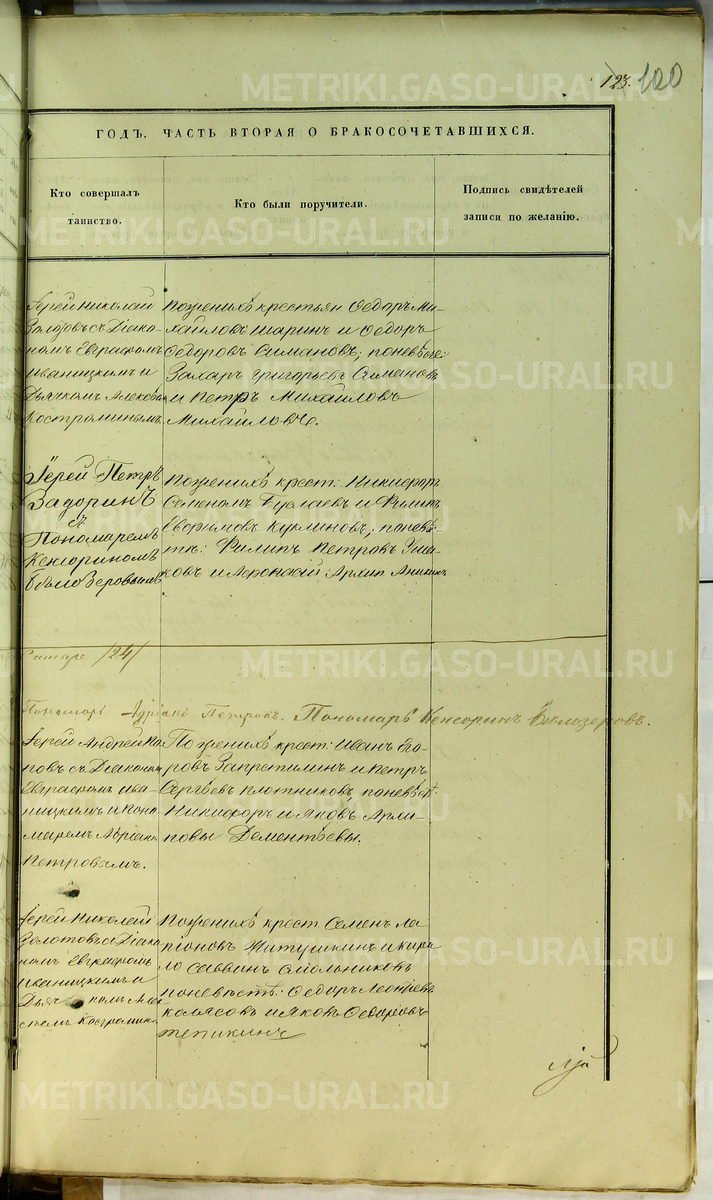 123. 100
ГОДЪ, ЧАСТЬ ВТОРАЯ О БРАКОСОЧЕТАВШИХСЯ.
Кто совершалъ
таинство.
Кто были поручители.
Подпись свидѣтелей
записи по желанію.
Іерей Николай
Золотовъ съ Діако-
номъ Евграфомъ
Иваницкимъ и
Дьячкомъ Алексѣемъ
Костроминымъ.
По женихѣ крестьян Ѳедоръ Ми-
хайловъ Шаринъ и Ѳедоръ
Ѳедоровъ Симановъ; по невѣсте:
Захаръ Григорьевъ Симановъ
и Петръ Михайловъ
Михайловъ.
Іерей Петръ
Задоринъ
съ
Пономаремъ
Кенсориномъ
Бѣлозеровымъ
По женихѣ крест: Никифоръ
Семеновъ Бурлаевъ и Филипъ
Ефимовъ Куклиновъ; по невѣс-
тѣ: Филипъ Петровъ Уша-
ковъ и Афонасій Архип Аникинъ
/24/
Пономарь Адріанъ Петровъ. Пономарь Кенсоринъ Бѣлозеровъ.
Іерей Андрей По-
повъ съ Діакономъ
Евграфомъ Ива-
ницкимъ и Поно-
маремъ Адріаномъ
Петровымъ.
По женихѣ крест: Иванъ Его-
ровъ Запретилинъ и Петръ
Сергѣевъ Плотниковъ, по невѣстѣ:
Никифоръ и Яковъ Архи-
повы Дементьевы.
Іерей Николай
Золотовъ съ Діако-
номъ Евграфомъ
Иваницкимъ и
Дьячкомъ Алек-
сѣемъ Костромин:
По женихѣ крест Семенъ Ла-
ріоновъ Титушкинъ и Кири-
ло Саввинъ Смольниковъ
по невѣстѣ: Ѳедоръ Леонтьевъ
Колясовъ и Яковъ Ѳедоровъ
Тепикинъ
METRIKI.GASO-URAL.RU